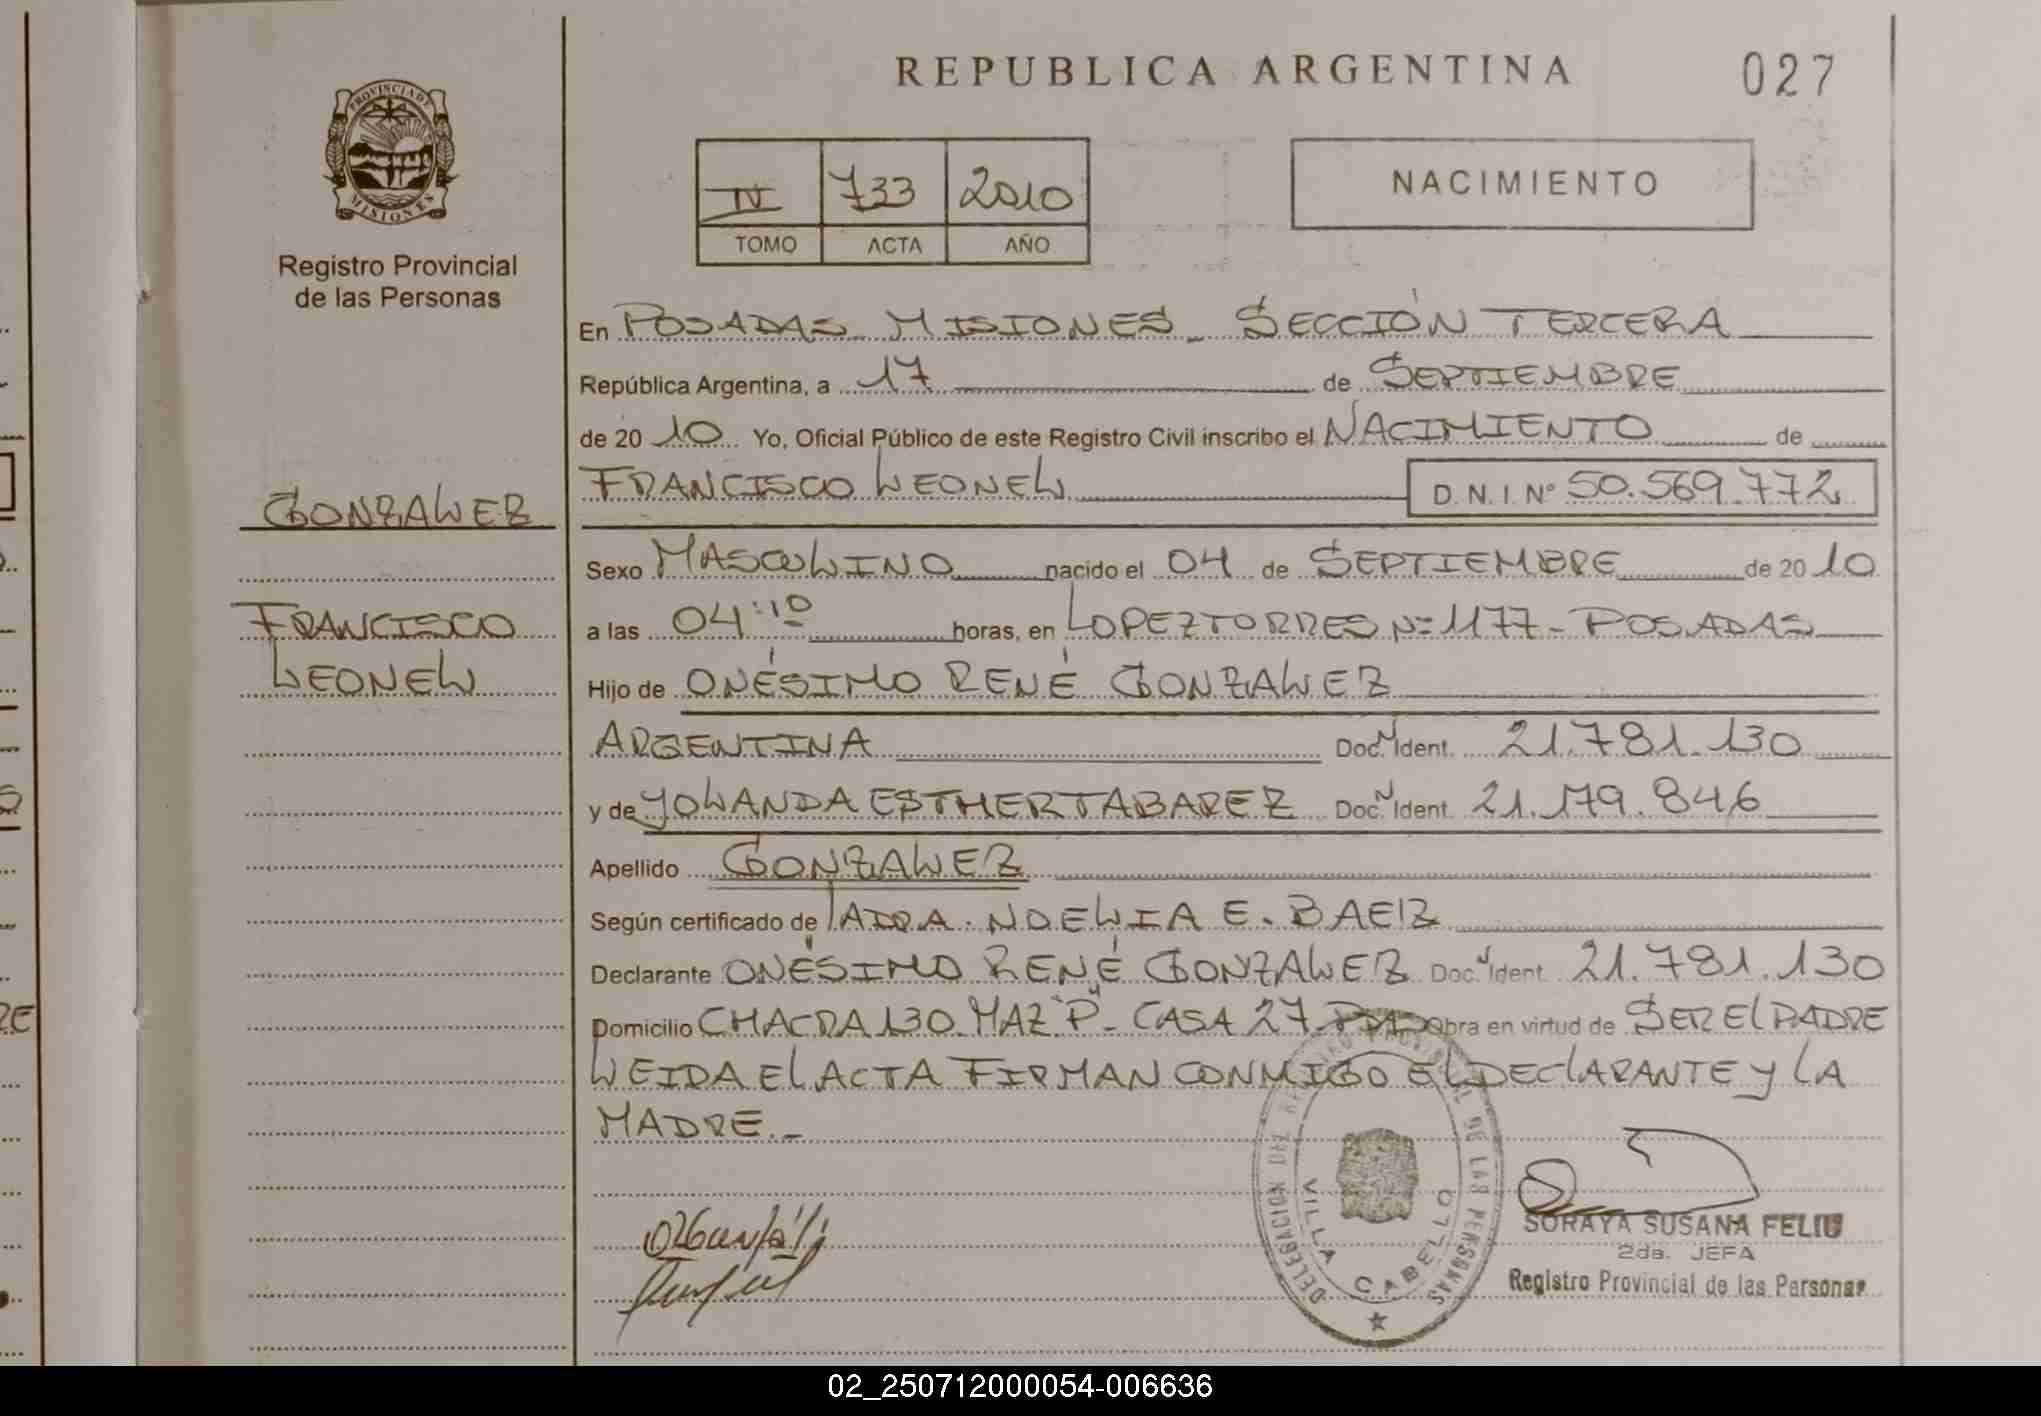 REPUBLICA ARGENTINA
027
PROVINCIA DE MISIONES
Registro Provincial
de las Personas
IV 733 2010
TOMO ACTA AÑO
NACIMIENTO
En POSADAS MISIONES - SECCIÓN TERCERA
República Argentina, a 17 de SEPTIEMBRE
de 20 10 Yo, Oficial Público de este Registro Civil inscribo el NACIMIENTO de
FRANCISCO LEONEL D.N.I Nº 50.569.772
GONZALEZ
FRANCISCO
LEONEL
Sexo MASCULINO nacido el 04 de SEPTIEMBRE de 20 10
a las 04:10 horas, en LOPEZ TORRES Nº 1177 - POSADAS
Hijo de ONÉSIMO RENÉ GONZALEZ
ARGENTINA Doc. N Ident. 21.781.130
y de YOLANDA ESTHER TABAREZ Doc. N Ident. 21.179.846
Apellido GONZALEZ
Según certificado de NOELIA E. BAEZ
Declarante ONÉSIMO RENÉ GONZALEZ Doc. N Ident. 21.781.130
Domicilio CHACRA 130 MAZ "P" - CASA 27 Obra en virtud de SER EL PADRE
LEIDA EL ACTA FIRMAN CONMIGO EL DECLARANTE Y LA
MADRE.-
DELEGACION DEL REGISTRO PROVINCIAL DE LAS PERSONAS
VILLA CABELLO
SORAYA SUSANA FELIU
2da. JEFA
Registro Provincial de las Personas
02_250712000054-006636